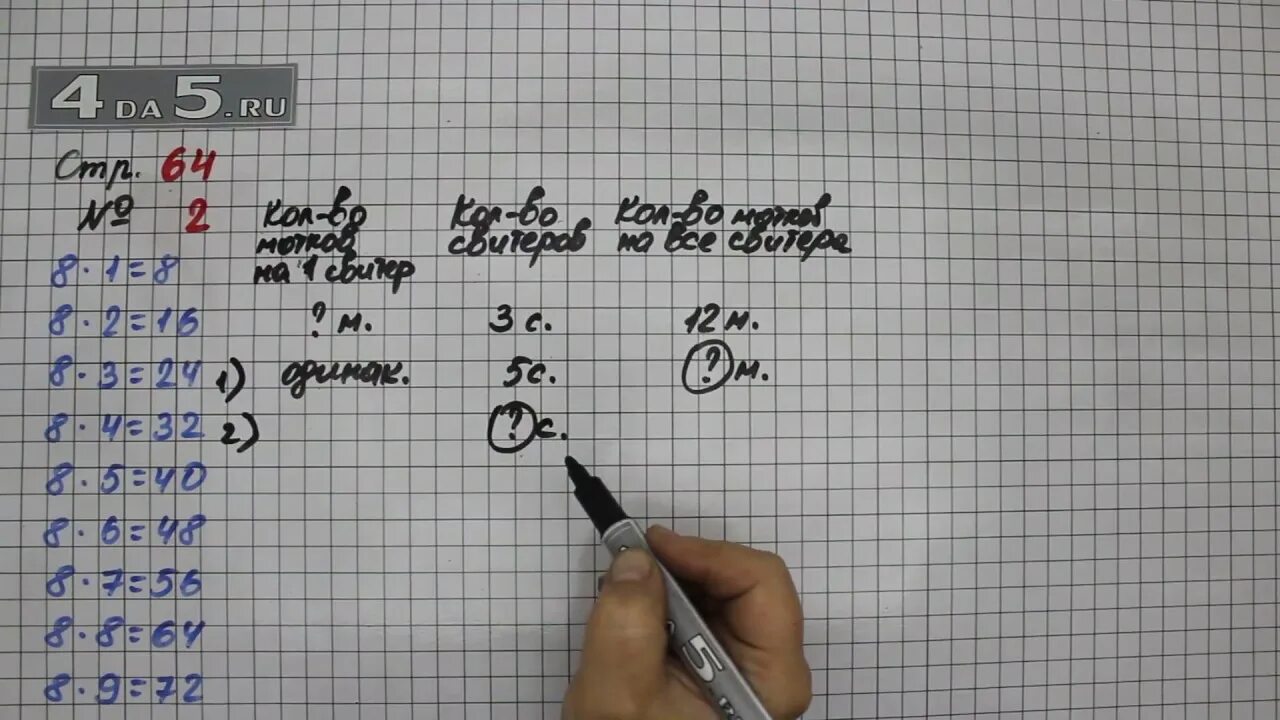 4 DA 5.RU
Стр. 64
№ 2
Кол-во мотков на 1 свитер
Кол-во свитеров
Кол-во мотков на все свитера
? м. 3 с. 12 м.
1) одинак. 5 с. ? м.
2) ? с.
8 · 1 = 8
8 · 2 = 16
8 · 3 = 24
8 · 4 = 32
8 · 5 = 40
8 · 6 = 48
8 · 7 = 56
8 · 8 = 64
8 · 9 = 72
5